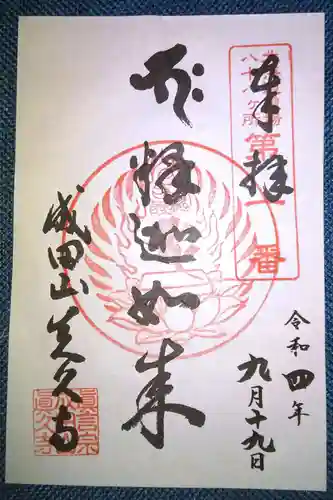 奉拝
八十八ヶ所
第一番
令和四年
九月十九日
釋迦如来
成田山真久寺
真言宗
真久寺